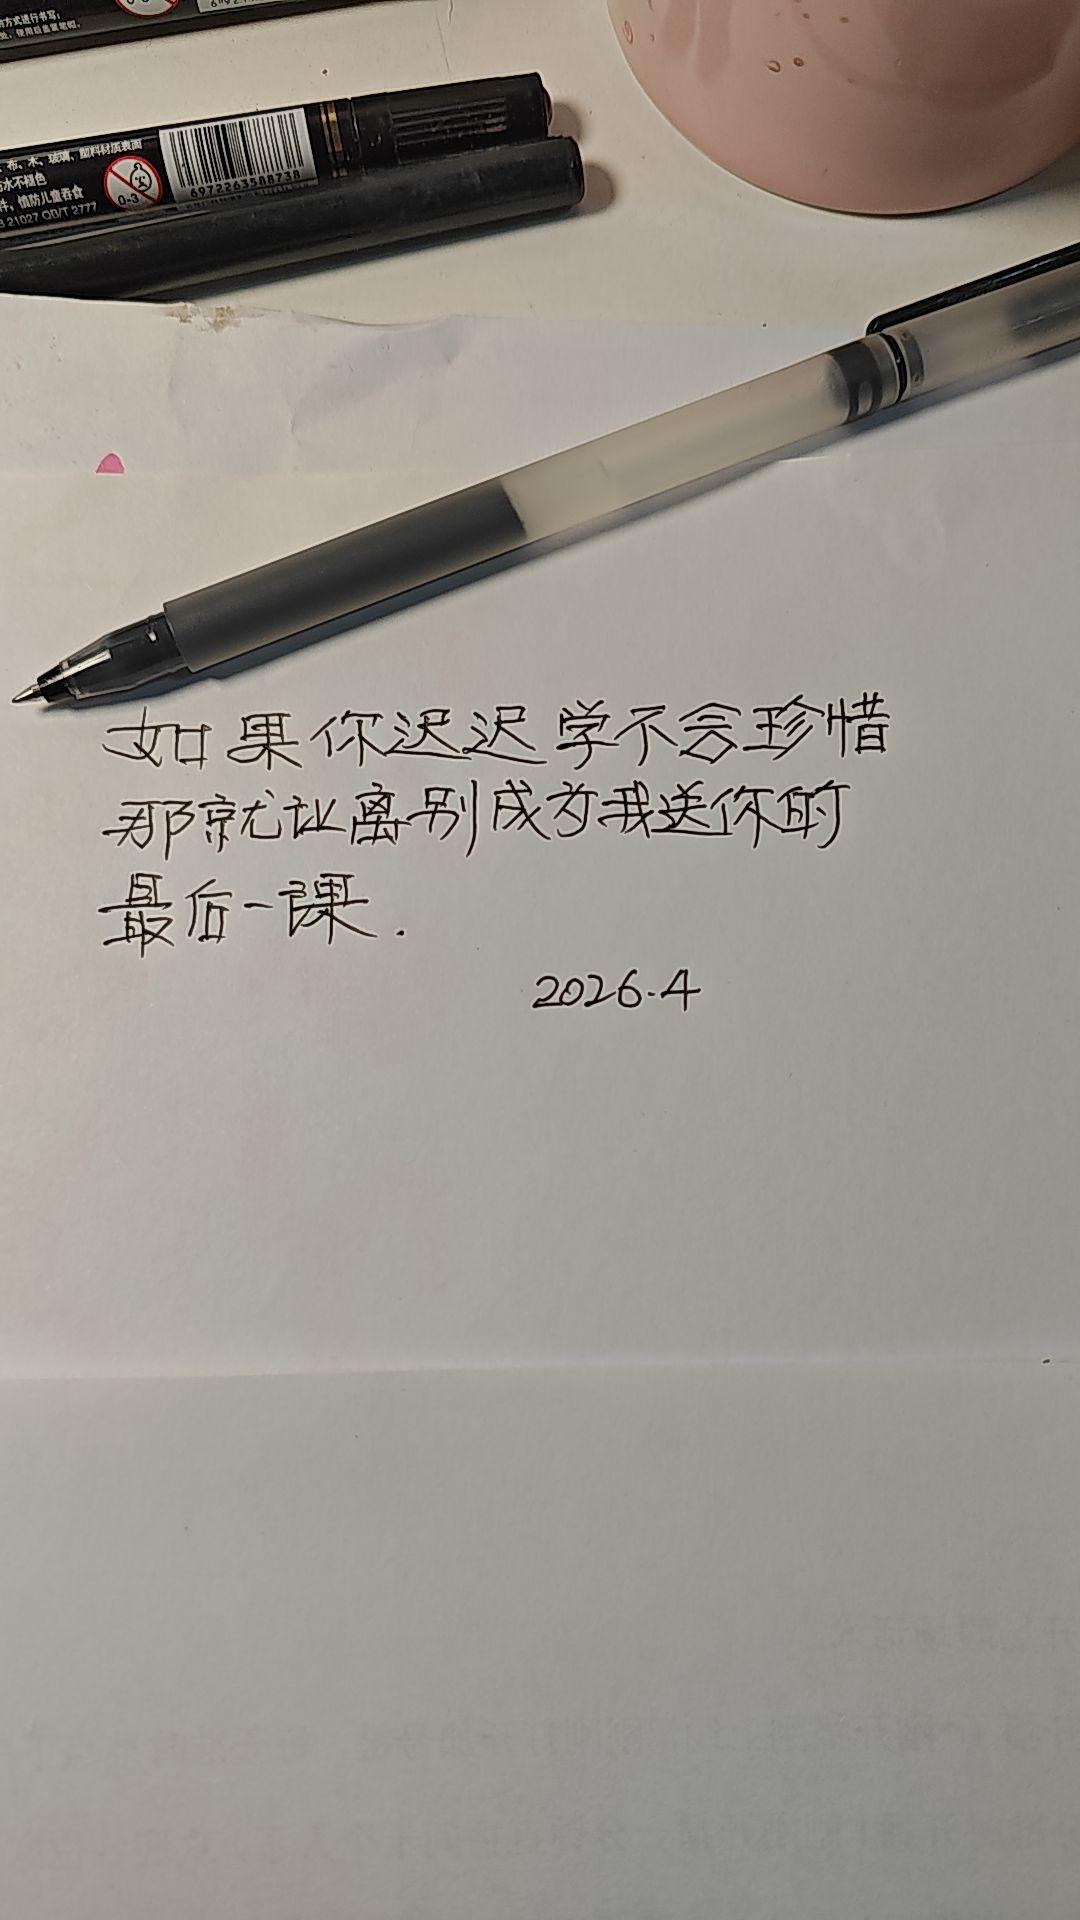 方式进行书写;
处, 使用后盖紧笔帽.
、布、木、玻璃、塑料材质表面
水不褪色
件, 慎防儿童吞食
21027 QB/T 2777
0-3
6972263588738
如果你迟迟学不会珍惜
那就让离别成为我送你的
最后一课.
2026.4